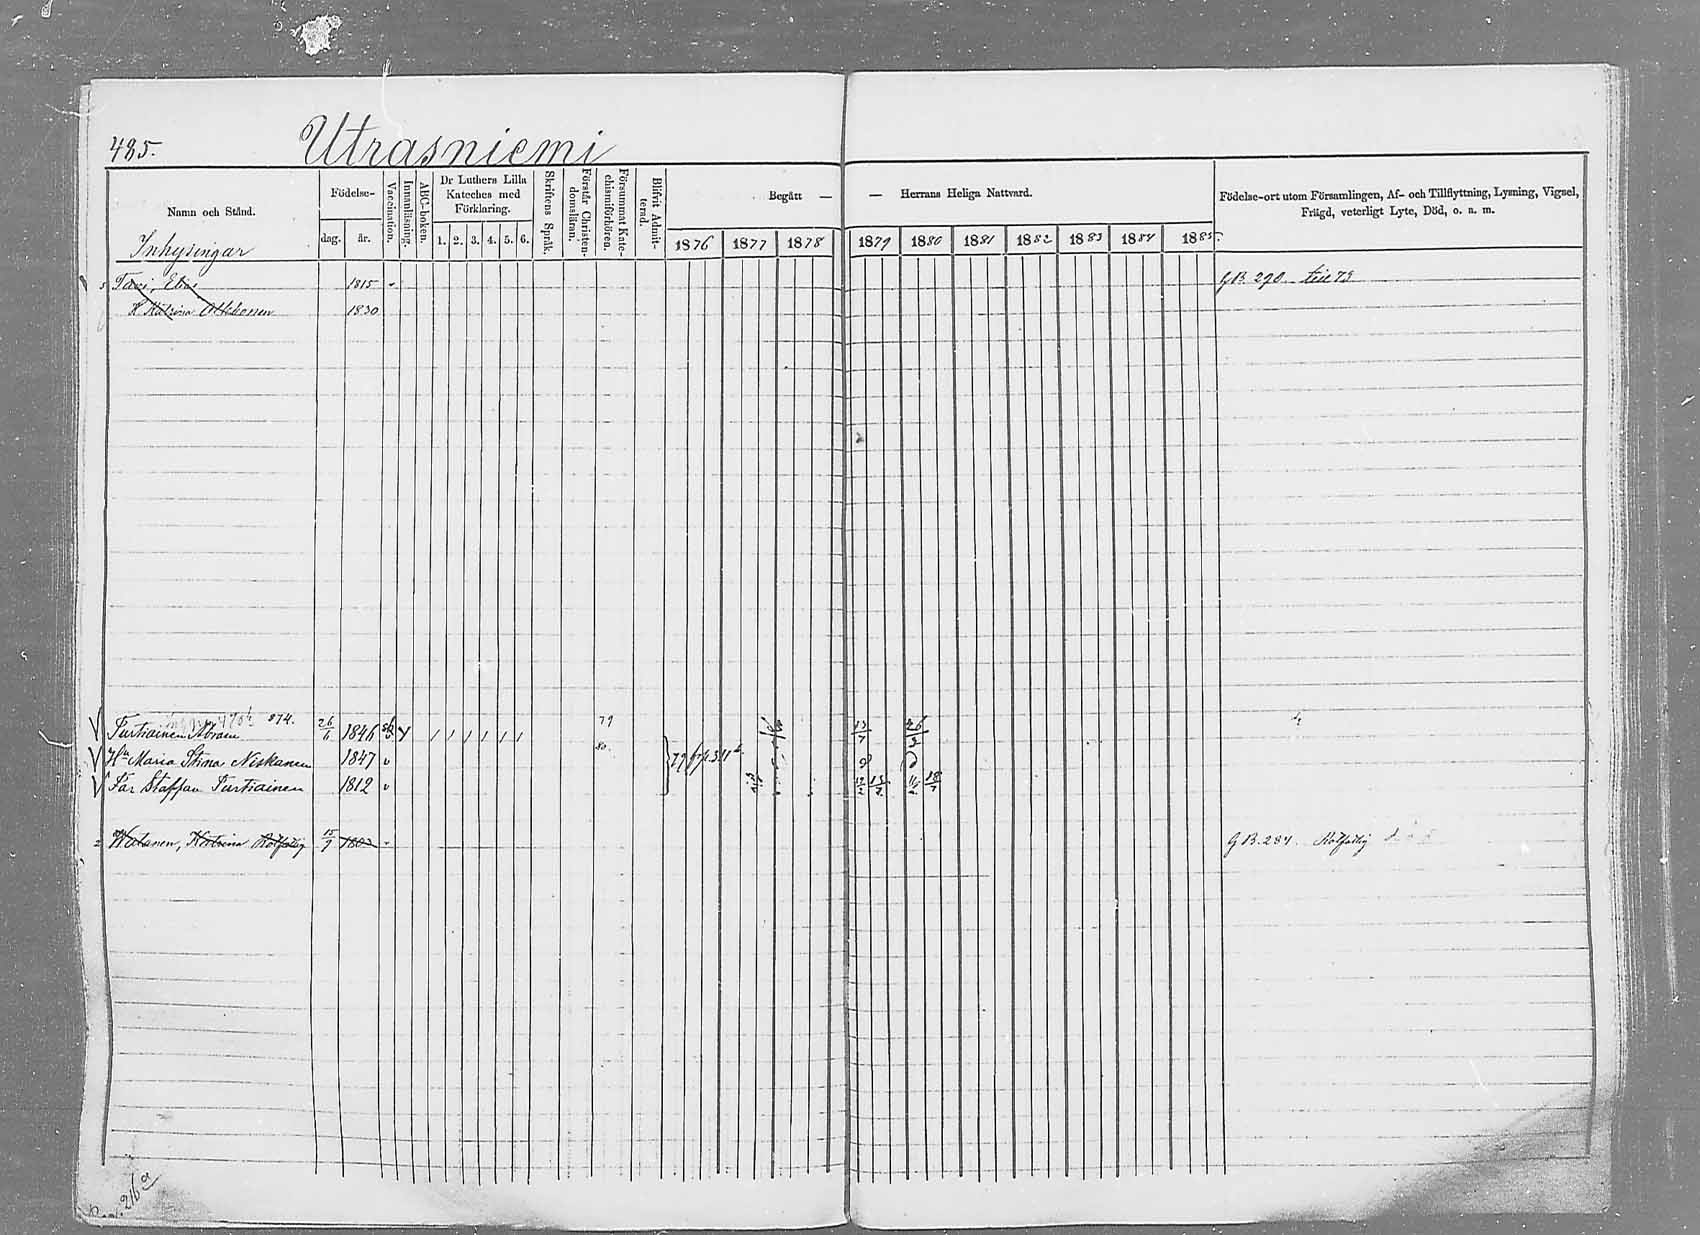 485. Utrasniemi
Namn och Stånd.
Födelse-
dag. år.
Vaccination.
Innanläsning.
ABC-boken.
Dr Luthers Lilla Kateches med Förklaring.
1. 2. 3. 4. 5. 6.
Skriftens Språk.
Förstår Christendomsläran.
Försummat Katechismiförhören.
Blifvit Admitterad.
Begått — — Herrans Heliga Nattvard.
1876 1877 1878 1879 1880 1881 1882 1883 1884 1885.
Födelse-ort utom Församlingen, Af- och Tillflyttning, Lysning, Vigsel,
Frägd, veterligt Lyte, Död, o. a. m.
Inhysingar
1815 GB. 290 till 73
H. Katrina 1830
874.
Turtiainen Abram 26/6 1846 79
Hu Maria Stina Niskanen 1847 80.
Far Staffan Turtiainen 1812
Watanen, Katrina Rotfattig 15/9 1803 GB. 287. Rotfattig
216 a